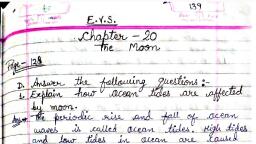 139
E.V.S.
Chapter - 20
The Moon
Page - 128
D. Answer the following questions :-
1. Explain how ocean tides are affected
by moon.
Ans → The periodic rise and fall of ocean
waves is called ocean tides. High tides
and low tides in ocean are caused